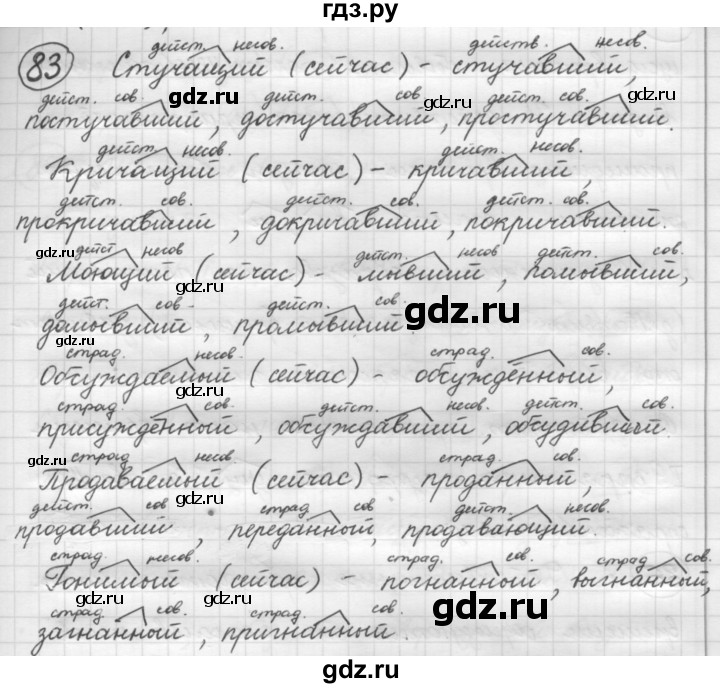 гдз.ру
83
дейст. несов. действ. несов.
Стучащий (сейчас) - стучавший,
дейст. сов. дейст. сов дейст. сов.
постучавший, достучавший, простучавший.
дейст. несов. дейст. несов.
Кричащий (сейчас) - кричавший,
дейст. сов. дейст. сов. дейст. сов.
прокричавший, докричавший, покричавший.
дейст несов дейст. несов дейст. сов.
Моющий (сейчас) - мывший, помывший,
дейст. сов. дейст. сов.
домывший, промывший.
страд. несов. страд. сов.
Обсуждаемый (сейчас) - обсуждённый,
страд. сов. дейст. несов. дейст. сов.
присуждённый, обсуждавший, обсудивший.
страд несов. страд. сов.
Продаваемый (сейчас) - проданный,
дейст. сов страд. сов дейст. несов.
продавший, переданный, продавающий.
страд. несов. страд. сов. страд. сов.
Гонимый (сейчас) - погнанный, выгнанный,
страд. сов. страд. сов.
загнанный, пригнанный.
gdz.ru
gdz.ru
gdz.ru
gdz.ru
gdz.ru
gdz.ru
gdz.ru
gdz.ru
gdz.ru
gdz.ru
gdz.ru
gdz.ru
gdz.ru
gdz.ru